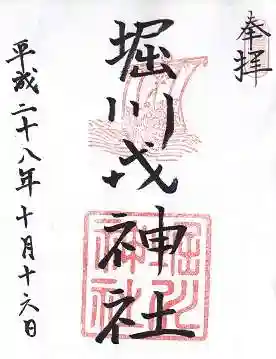 奉拝
堀川戎神社
平成二十八年十月十六日